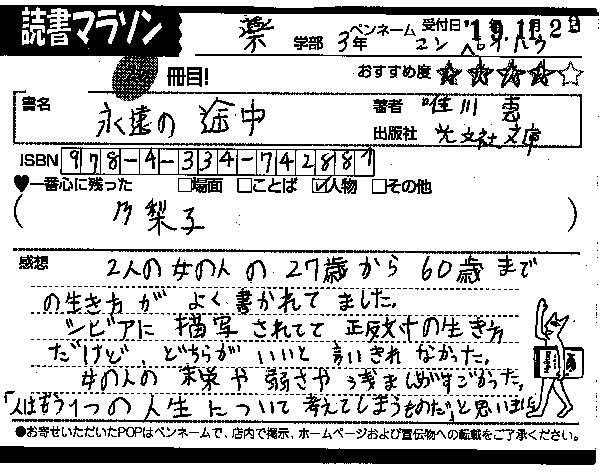 読書マラソン
薬 学部 3年 ペンネーム
受付日 '19.11.2
冊目!
おすすめ度 ★★★★☆
書名 永遠の途中
著者 唯川 恵
出版社 光文社文庫
ISBN 978-4-334-74288
♥一番心に残った □場面 □ことば ☑人物 □その他
( 乃梨子 )
感想 2人の女の人の27歳から60歳まで
の生き方がよく書かれてました。
シビアに描写されてて正反対の生き方
だけど、どちらがいいと言いきれなかった。
女の人の や弱さや浅ましさがすごかった。
「人はもう1つの人生について考えてしまうものだ」と思いました
●お寄せいただいたPOPはペンネームで、店内で掲示、ホームページおよび宣伝物への転載をご了承ください。